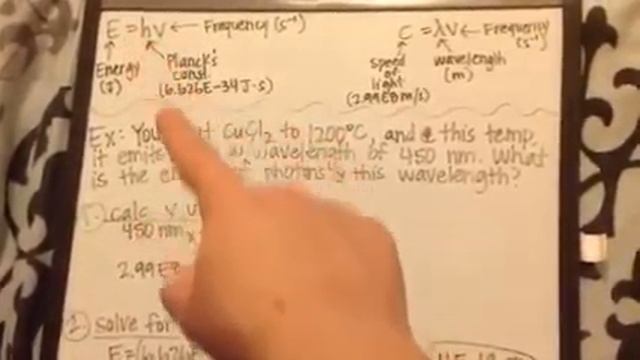 E = hν ← Frequency (s⁻¹)
Energy (J)
Planck's const. (6.626E-34J·s)
C = λν ← Frequency (s⁻¹)
speed of light (2.99E8m/s)
wavelength (m)
Ex: You CuCl₂ to 1200°C, and @ this temp,
it emits wavelength of 450 nm. What
is the photons this wavelength?
1. calc ν
450 nm x
2.99E8
2. solve for
E=(6.626E